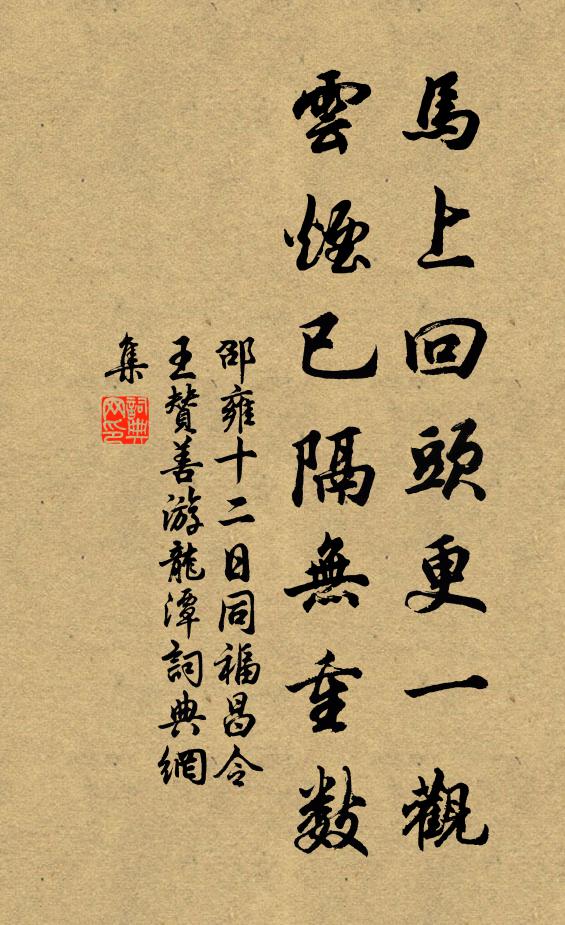 馬上回頭更一觀
雲煙已隔無重數
邵雍十二日同福昌令
王贊善游龍潭詞典網
集
詞典網印